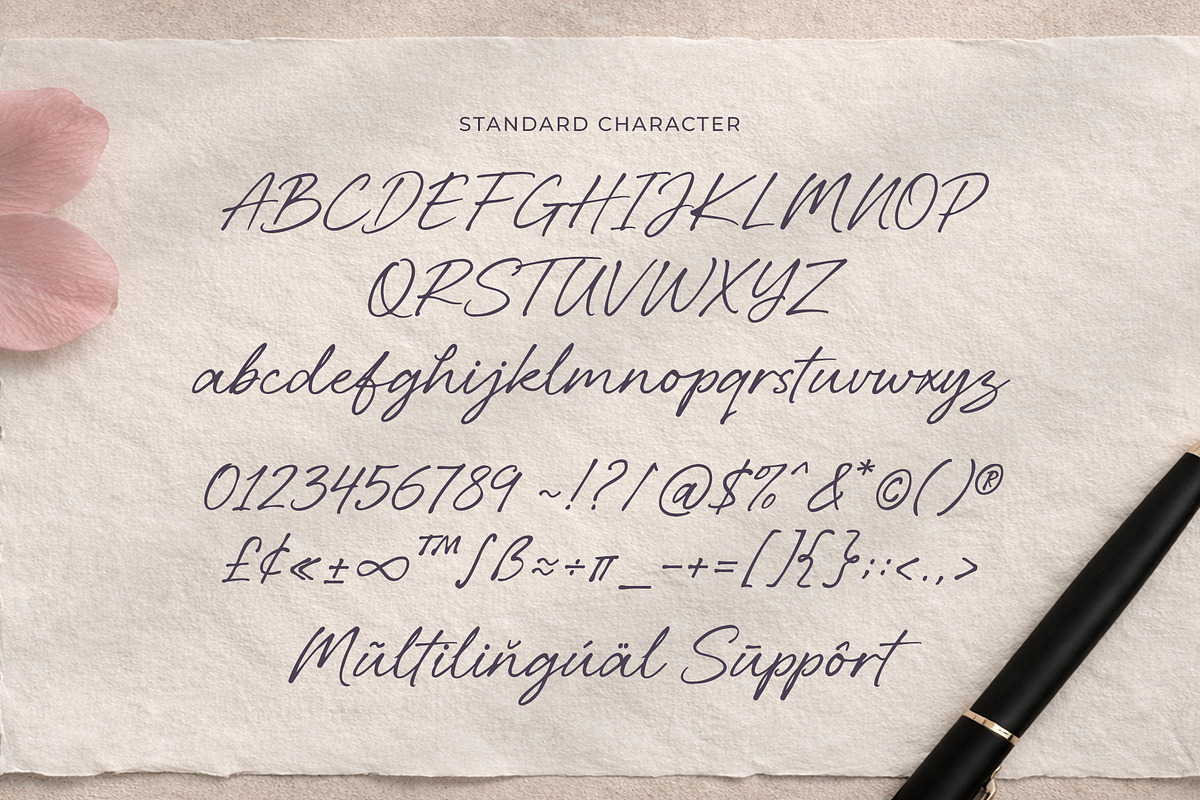 STANDARD CHARACTER
ABCDEFGHIJKLMNOP
QRSTUVWXYZ
abcdefghijklmnopqrstuvwxyz
0123456789 ~!?/@$%^&*©()®
£¢«±∞™∫ß≈÷π_-+=[]{};:<.,>
Mũltiliňgúäl Sūppôrt